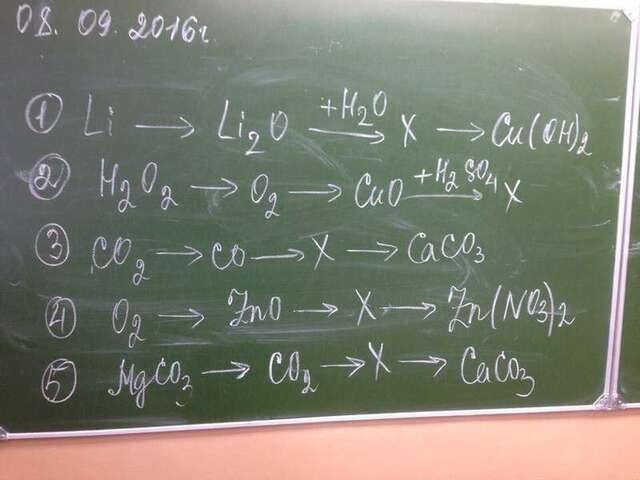 08. 09. 2016г.
① Li → Li₂O +H₂O → X → Cu(OH)₂
② H₂O₂ → O₂ → CuO +H₂SO₄ → X
③ CO₂ → CO → X → CaCO₃
④ O₂ → ZnO → X → Zn(NO₃)₂
⑤ MgCO₃ → CO₂ → X → CaCO₃